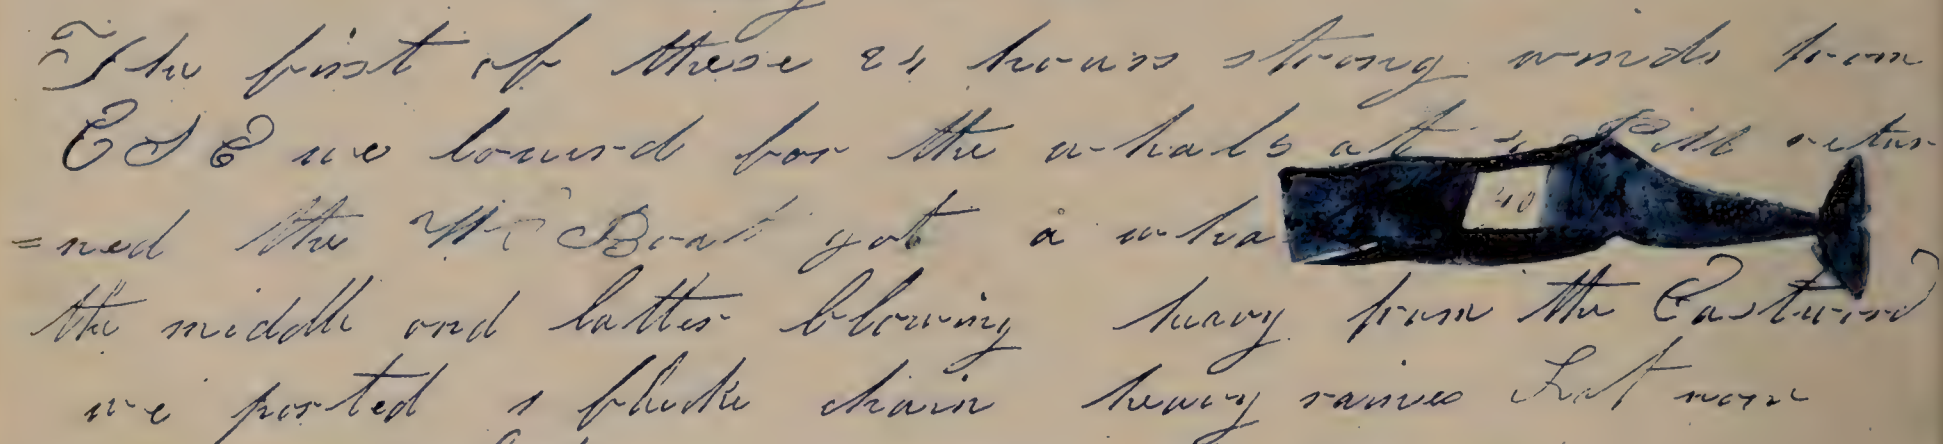 The first of these 24 hours strong winds from
ESE we lowerd for the whals at 4 PM retur
=ned the W Boat got a wha 40
the middle and latter blowing heavy from the Eastward
we parted 1 fluke chain heavy raines Lat non